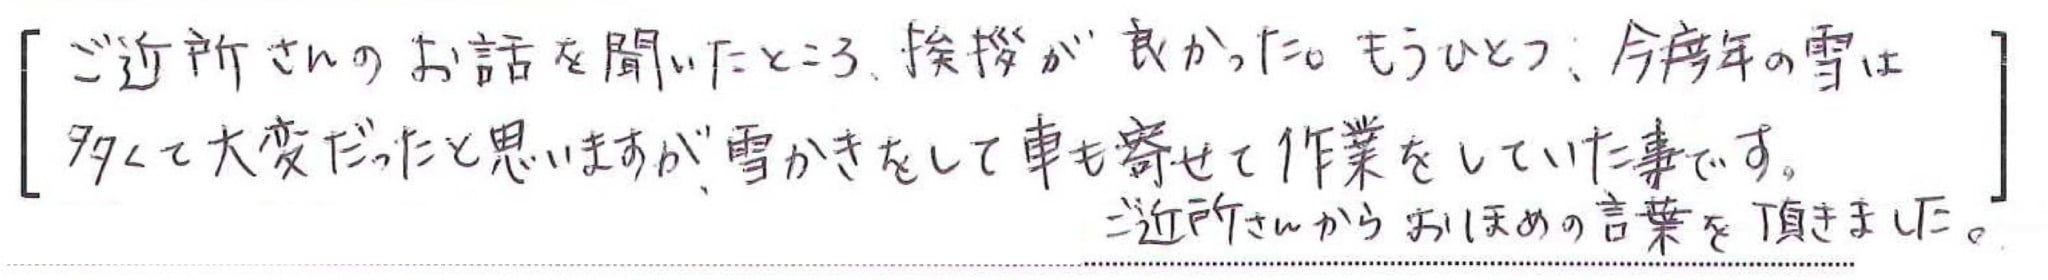 ご近所さんのお話を聞いたところ、挨拶が良かった。もうひとつ、今度年の雪は
多くて大変だったと思いますが、雪かきをして車も寄せて作業をしていた事です。
ご近所さんからおほめの言葉を頂きました。